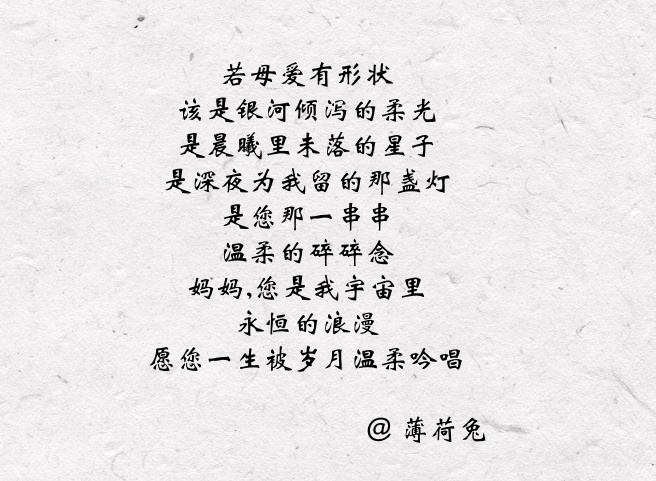 若母爱有形状
该是银河倾泻的柔光
是晨曦里未落的星子
是深夜为我留的那盏灯
是您那一串串
温柔的碎碎念
妈妈,您是我宇宙里
永恒的浪漫
愿您一生被岁月温柔吟唱
@薄荷兔